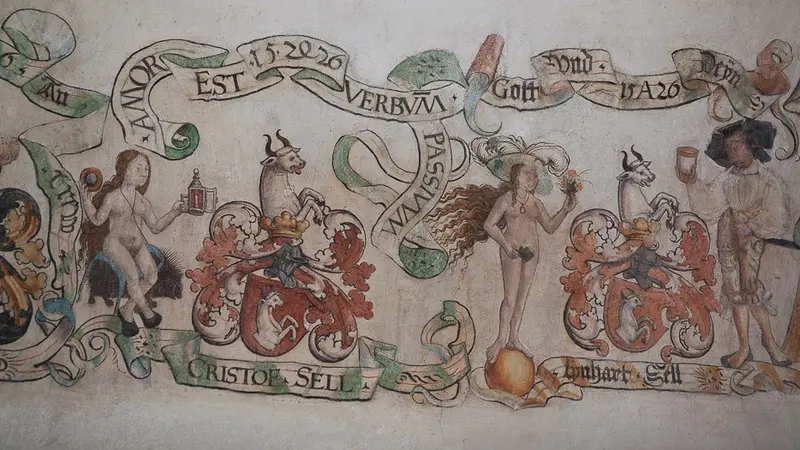 An
AMOR EST · 15·20·26 VERBVM̄ · PASSIVVM
Gott Vnd · 15A26 Deyn
CRISTOF · SELL
lynhart · Sell